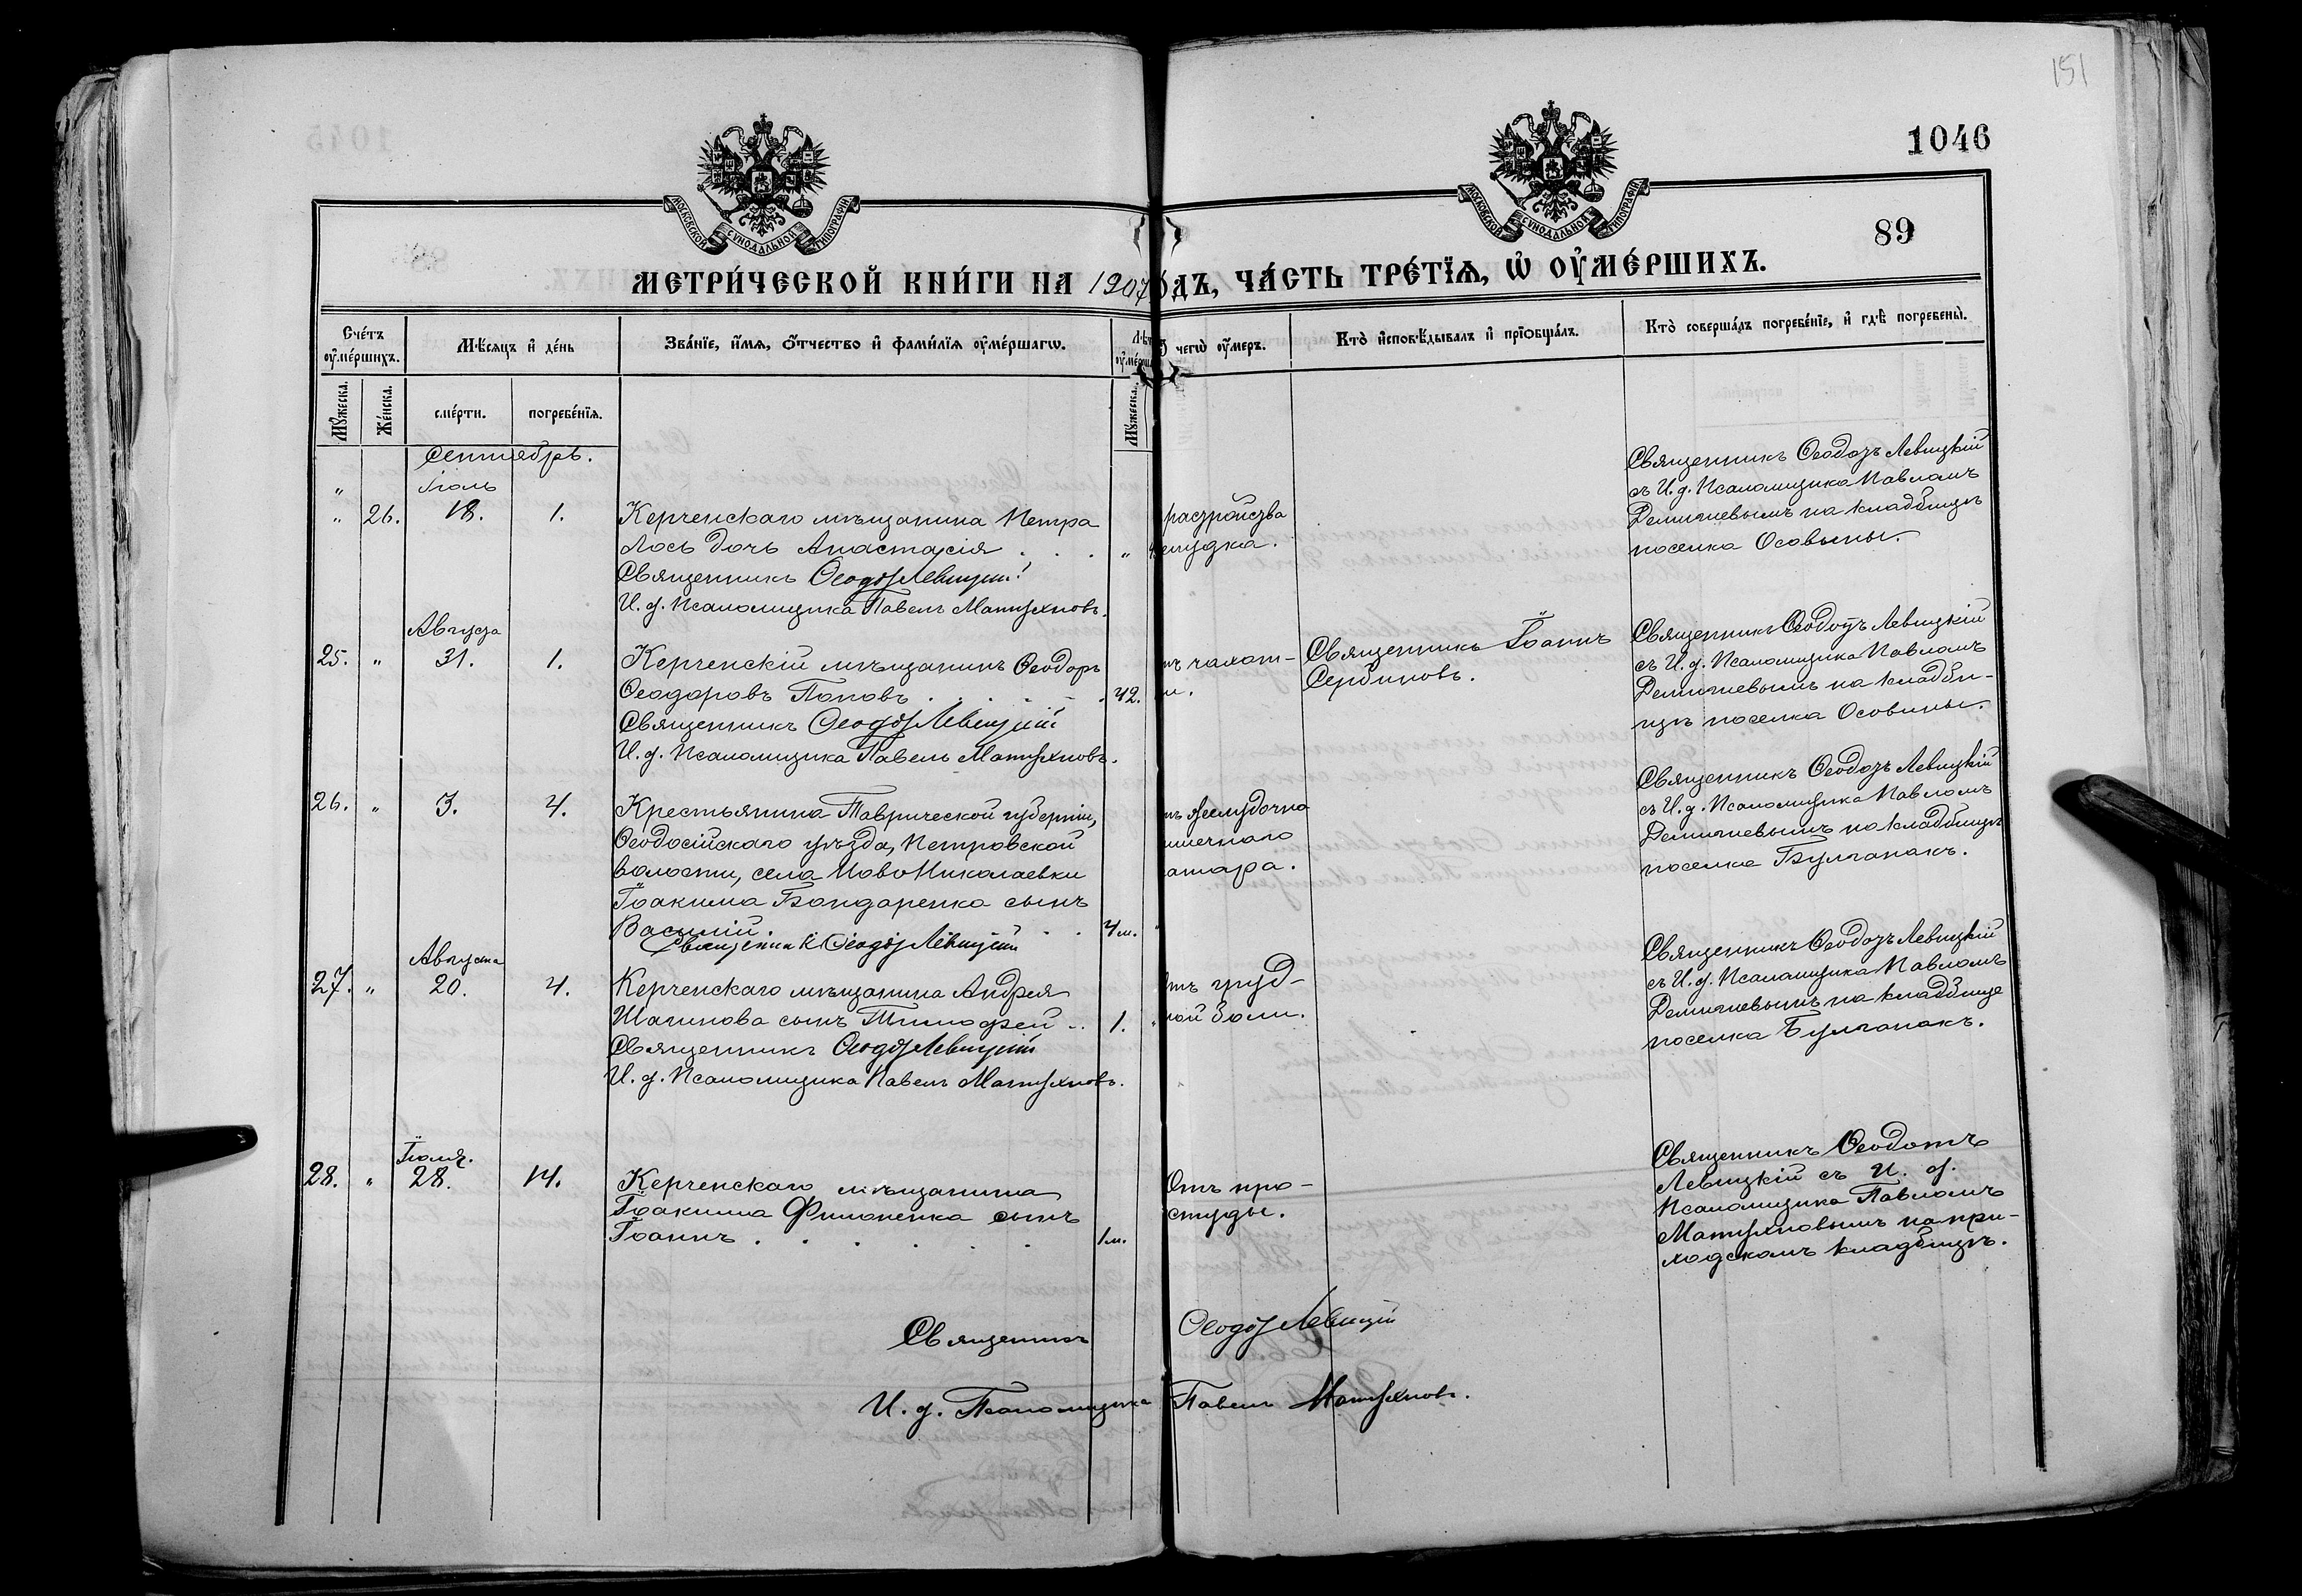 151
1046
89
МОСКОВСКОЙ СУНОДАЛЬНОЙ ТИПОГРАФІИ
МОСКОВСКОЙ СУНОДАЛЬНОЙ ТИПОГРАФІИ
МЕТРИ́ЧЕСКОЙ КНИ́ГИ НА 1907 О́ДЪ, ЧА́СТЬ ТРЕ́ТЇѦ, Ѡ҆ ОУ҆МЕ́РШИХЪ.
Сче́тъ оу҆ме́ршихъ.
Мѣ́сѧцъ и҆ де́нь
Зва́нїе, и҆́мѧ, ѻ҆́тчество и҆ фами́лїѧ оу҆ме́ршагѡ.
Лѣт
оу҆ме́рш
чегѡ̀ оу҆́меръ.
Кто̀ и҆сповѣ́дывалъ и҆ прїѡбща́лъ.
Кто̀ соверша́лъ погребе́нїе, и҆ гдѣ̀ погребены̀.
Мꙋ́жеска.
Же́нска.
сме́рти.
погребе́нїѧ.
Мꙋ́жеска.
Сентябрь.
Іюль
" 26. 18. 1.
Керченскаго мѣщанина Петра
Лось дочь Анастасія . . . "
Священникъ Ѳеодотъ Левицкій
И. д. Псаломщика Павелъ Матухновъ.
разстройства
елудка.
Священникъ Ѳеодотъ Левицкій
съ И. д. Псаломщика Павломъ
на кладбищѣ
поселка Осовины.
Августа
25. " 31. 1.
Керченскій мѣщанинъ Ѳеодоръ
Ѳеодоровъ Поповъ . . . . . 42.
Священникъ Ѳеодотъ Левицкій
И. д. Псаломщика Павелъ Матухновъ.
тъ чахот-
и.
Священникъ Іоаннъ
Сербиновъ.
Священникъ Ѳеодотъ Левицкій
съ И. д. Псаломщика Павломъ
на кладби-
щѣ поселка Осовины.
26. " 3. 4.
Крестьянина Таврической губерніи,
Ѳеодосійскаго уѣзда, Петровской
волости, села Ново Николаевки
Іоакима Бондаренка сынъ
Василій. . . 4 м.
Священникъ Ѳеодотъ Левицкій
тъ желудочно
шечнаго
атара.
Священникъ Ѳеодотъ Левицкій
съ И. д. Псаломщика Павломъ
на кладбищѣ
поселка Булганакъ.
Августа
27. " 20. 4.
Керченскаго мѣщанина Андрея
Шагинова сынъ Тимофей .. 1. "
Священникъ Ѳеодотъ Левицкій
И. д. Псаломщика Павелъ Матухновъ.
тъ груд-
ной боли.
Священникъ Ѳеодотъ Левицкій
съ И. д. Псаломщика Павломъ
на кладбище
поселка Булганакъ.
Іюля.
28. " 28. 14.
Керченскаго мѣщанина
Іоакима Филоненка сынъ
Іоаннъ . . . . . . 1 м.
Отъ про-
студы.
Священникъ Ѳеодотъ
Левицкій съ И. д.
Псаломщика Павломъ
Матухновымъ на при-
ходскомъ кладбищѣ.
Священникъ Ѳеодотъ Левицкій
И. д. Псаломщика Павелъ Матухновъ.